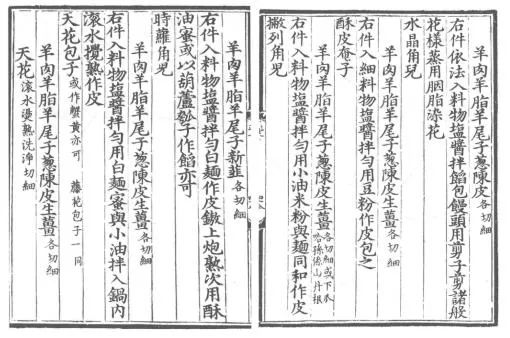 羊肉羊脂羊尾子葱陳皮生薑各切細
右件依法入料物塩醬拌餡包饅頭用剪子剪諸般
花樣蒸用胭脂染花
水晶角兒
羊肉羊脂羊尾子葱陳皮生薑各切細
右件入細料物塩醬拌勻用豆粉作皮包之
酥皮奄子
羊肉羊脂羊尾子葱陳皮生薑各切細或下瓜哈孫係山丹根
右件入料物塩醬拌勻用小油米粉與麵同和作皮
撇列角兒
羊肉羊脂羊尾子新韮各切細
右件入料物塩醬拌勻白麵作皮鏊上炮熟次用酥
油蜜或以葫蘆瓠子作餡亦可
時蘿角兒
羊肉羊脂羊尾子葱陳皮生薑各切細
右件入料物塩醬拌勻用白麵蜜與小油拌入鍋內
滾水攪熟作皮
天花包子或作蟹黃亦可 藤花包子一同
羊肉羊脂羊尾子葱陳皮生薑各切細
天花滾水燙熟洗淨切細